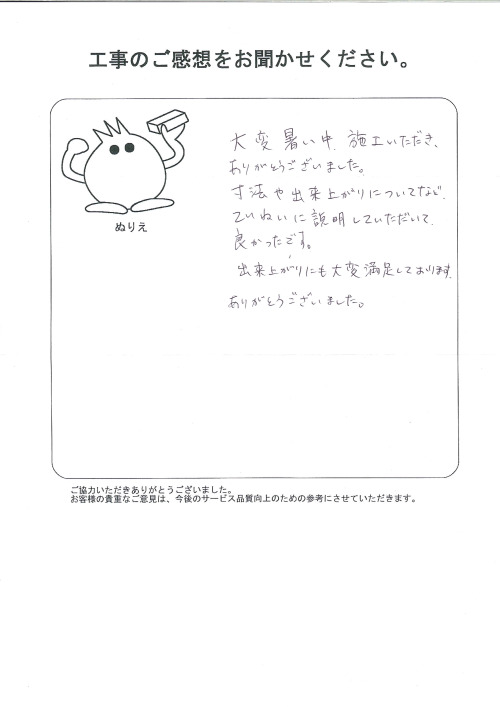 工事のご感想をお聞かせください。
大変暑い中、施工いただき、
ありがとうございました。
寸法や出来上がりについてなど、
ていねいに説明していただいて、
良かったです。
出来上がりにも大変満足しております。
ありがとうございました。
ぬりえ
ご協力いただきありがとうございました。
お客様の貴重なご意見は、今後のサービス品質向上のための参考にさせていただきます。